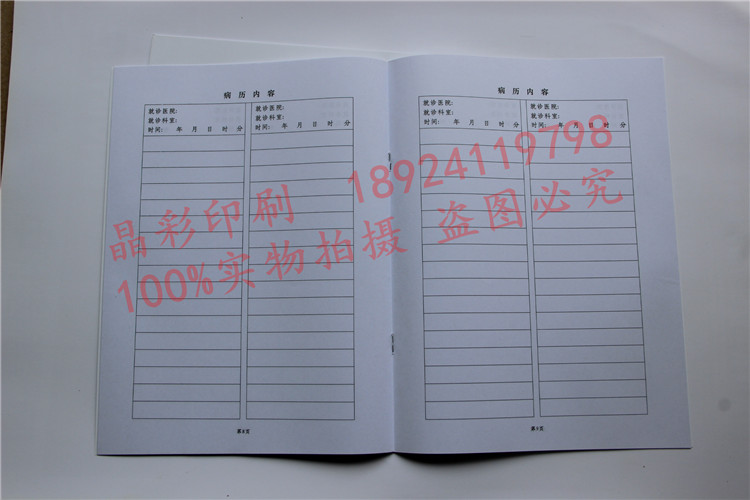 病历内容
就诊医院:
就诊科室:
时间: 年 月 日 时 分
就诊医院:
就诊科室:
时间: 年 月 日 时 分
第8页
病历内容
就诊医院:
就诊科室:
时间: 年 月 日 时 分
就诊医院:
就诊科室:
时间: 年 月 日 时 分
第9页
晶彩印刷 18924119798
100%实物拍摄 盗图必究